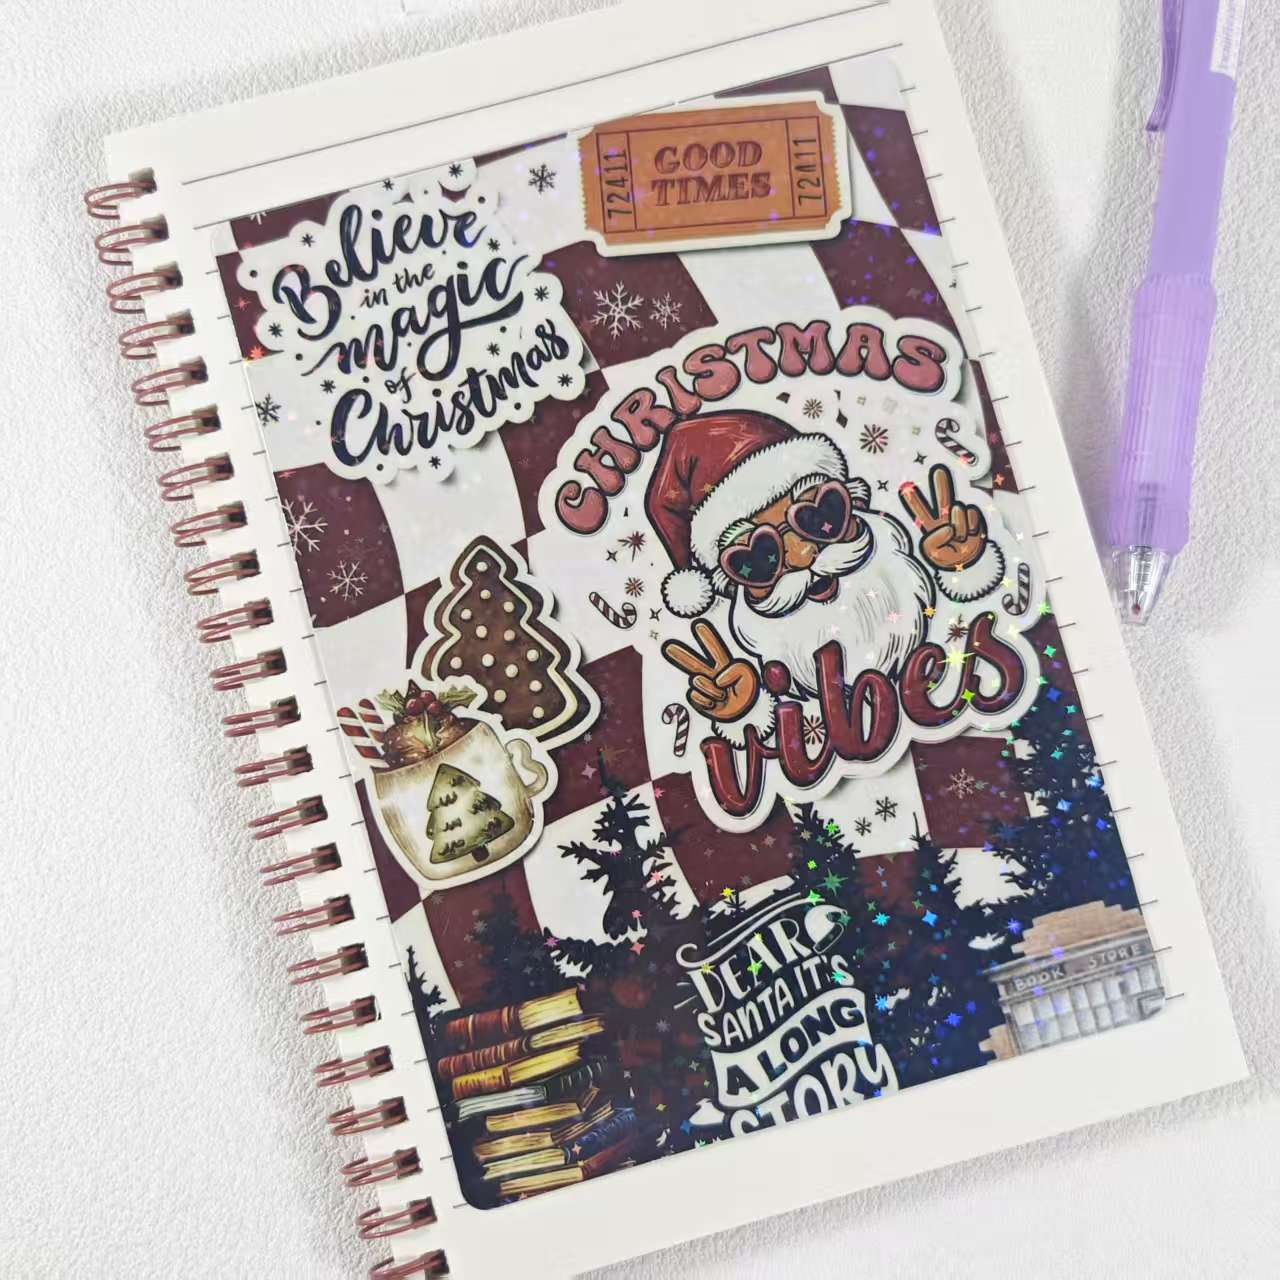 Believe
in the
magic
of
Christmas
GOOD
TIMES
72411
72411
CHRISTMAS
vibes
DEAR
SANTA IT'S
A LONG
STORY
BOOK STORE